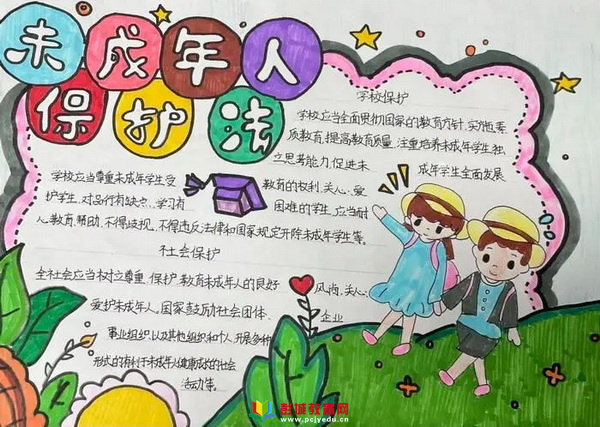 未成年人
保护法
学校保护
学校应当全面贯彻国家的教育方针,实施素
质教育,提高教育质量,注重培养未成年学生独
立思考能力,促进未成年学生全面发展
学校应当尊重未成年学生受教育的权利,关心、爱
护学生,对品行有缺点、学习有困难的学生,应当耐
心教育、帮助,不得歧视,不得违反法律和国家规定开除未成年学生等。
社会保护
全社会应当树立尊重、保护、教育未成年人的良好风尚,关心、
爱护未成年人。国家鼓励社会团体、企业
事业组织以及其他组织和个人,开展多种
形式的有利于未成年人健康成长的社会
活动等。
教育网
www.pcjyedu.cn